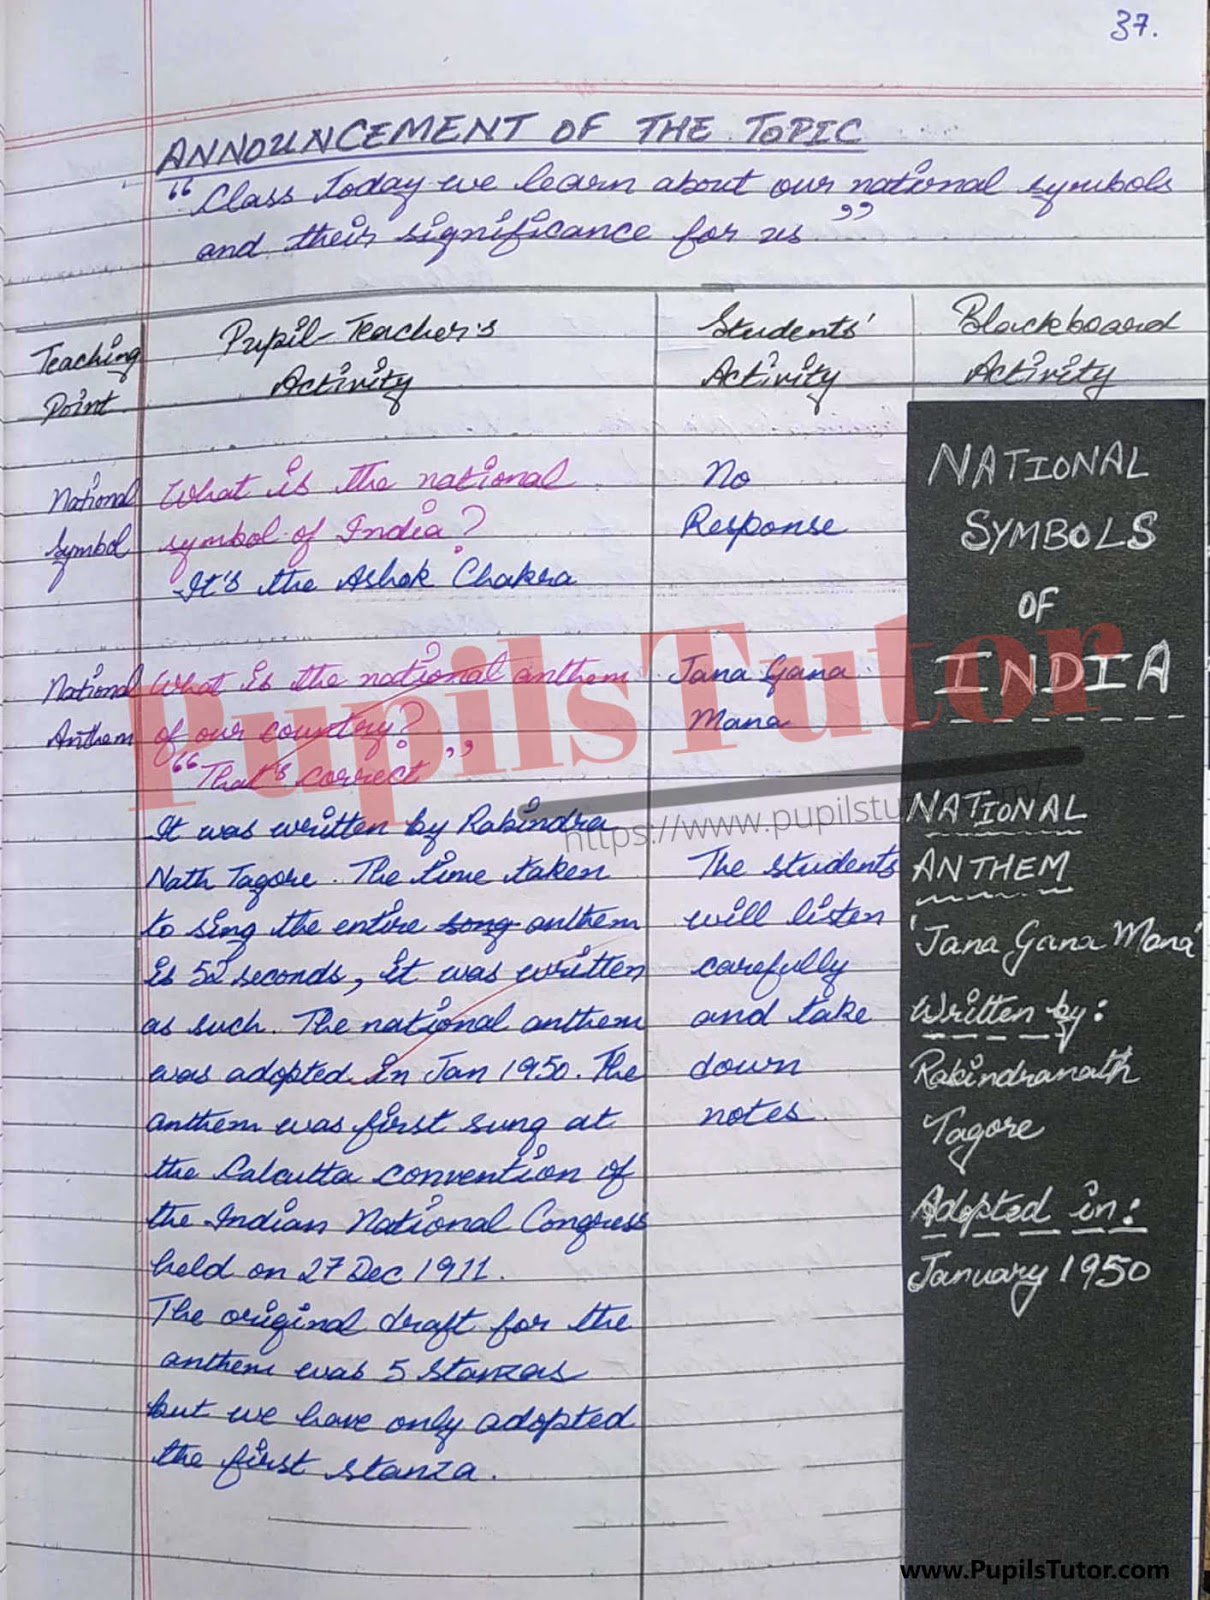 37.
ANNOUNCEMENT OF THE TOPIC
“Class Today we learn about our national symbols
and their significance for us”
Teaching
Point
Pupil-Teacher's
Activity
Students'
Activity
Blackboard
Activity
National
Symbol
What is the national
symbol of India?
It's the Ashok Chakra
No
Response
National
Anthem
What is the national anthem
of our country?
“That's correct”
It was written by Rabindra
Nath Tagore. The time taken
to sing the entire song anthem
is 52 seconds, it was written
as such. The national anthem
was adopted in Jan 1950. The
anthem was first sung at
the Calcutta convention of
the Indian National Congress
held on 27 Dec 1911.
The original draft for the
anthem was 5 stanzas
but we have only adopted
the first stanza.
Jana Gana
Mana
The students
will listen
carefully
and take
down
notes.
NATIONAL
SYMBOLS
OF
INDIA
NATIONAL
ANTHEM
'Jana Gana Mana'
Written by:
Rabindranath
Tagore
Adopted in:
January 1950
PupilsTutor
https://www.pupilstu
www.PupilsTutor.com